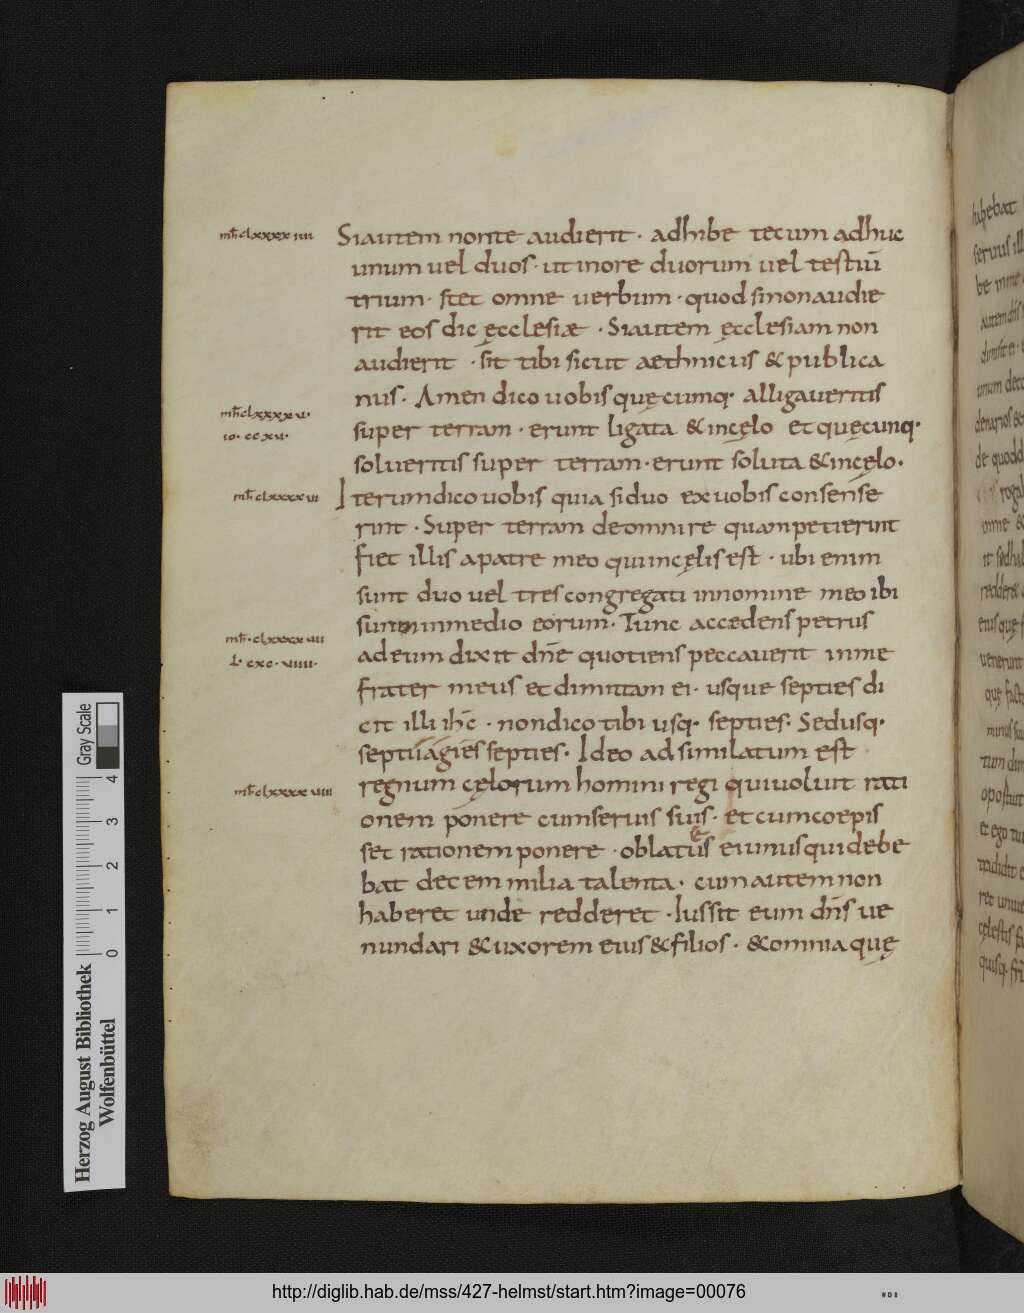 mt̄ clxxxx iiii
Siautem nonte audierit · adhibe tecum adhuc
unum uel duos · ut inore duorum uel testiū
trium · stet omne uerbum · quod sinonaudie
rit eos dic ęcclesiæ · Siautem ęcclesiam non
audierit · sit tibi sicut aethnicus & publica
nus · Amen dico uobis quęcumq· alligaueritis
mt̄ clxxxx u·
super terram · erunt ligata & incęlo et quęcunq·
io· cc xu·
solueritis super terram · erunt soluta & incęlo·
mt̄ clxxxx ui
Iterum dico uobis quia si duo ex uobis consense
rint · Super terram deomnire quampetierint
fiet illis apatre meo qui incęlis est · ubi enim
sunt duo uel tres congregati innomine meo ibi
sum inmedio eorum · Tunc accedens petrus
mt̄ · clxxxx uii
adeum dixit dn̄e quotiens peccauerit inme
L· cxc · uiiii·
frater meus et dimittam ei · usque septies di
cit illi ih̄c · nondico tibi usq· septies · Sedusq·
septuagies septies · Ideo adsimilatum est
mt̄ clxxxx uiii
regnum cęlorum homini regi quiuoluit rati
onem ponere cumseruis suis · et cumcoepis
set rationem ponere · oblatus e eiunusquidebe
bat decem milia talenta · cum autem non
haberet unde redderet · Iussit eum dn̄s ue
nundari & uxorem eius & filios · & omnia quę
habebat
be inme
unum
denarios
de quodd
roga
redderet
eius que
uenerunt
tum dim
et ego
tradidit
quisq·
Herzog August Bibliothek
Wolfenbüttel
0 1 2 3 4
Gray Scale
http://diglib.hab.de/mss/427-helmst/start.htm?image=00076